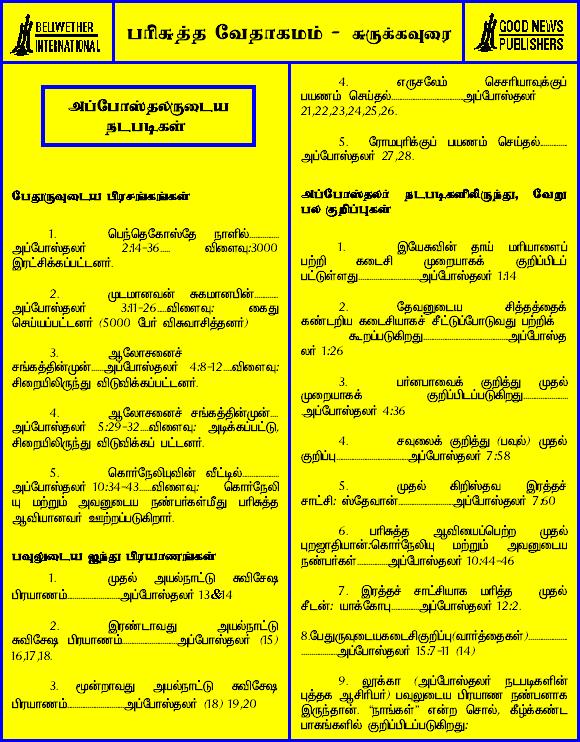 BELLWETHER
INTERNATIONAL
பரிசுத்த வேதாகமம் - சுருக்கவுரை
GOOD NEWS
PUBLISHERS
அப்போஸ்தலருடைய
நடபடிகள்
பேதுருவுடைய பிரசங்கங்கள்
1. பெந்தெகோஸ்தே நாளில்...............
அப்போஸ்தலர் 2:14-36..... விளைவு:3000
இரட்சிக்கப்பட்டனர்.
2. முடமானவன் சுகமானபின்............
அப்போஸ்தலர் 3:11-26....விளைவு: கைது
செய்யப்பட்டனர் (5000 பேர் விசுவாசித்தனர்)
3. ஆலோசனைச்
சங்கத்தின்முன்......அப்போஸ்தலர் 4:8-12....விளைவு:
சிறையிலிருந்து விடுவிக்கப்பட்டனர்.
4. ஆலோசனைச் சங்கத்தின்முன்....
அப்போஸ்தலர் 5:29-32.....விளைவு: அடிக்கப்பட்டு,
சிறையிலிருந்து விடுவிக்கப் பட்டனர்.
5. கொர்நேலியுவின் வீட்டில்..................
அப்போஸ்தலர் 10:34-43......விளைவு: கொர்நேலி
யு மற்றும் அவனுடைய நண்பர்கள்மீது பரிசுத்த
ஆவியானவர் ஊற்றப்படுகிறார்.
பவுலுடைய ஐந்து பிரயாணங்கள்
1. முதல் அயல்நாட்டு சுவிசேஷ
பிரயாணம்..........................அப்போஸ்தலர் 13&14
2. இரண்டாவது அயல்நாட்டு
சுவிசேஷ பிரயாணம்...........................அப்போஸ்தலர் (15)
16,17,18.
3. மூன்றாவது அயல்நாட்டு சுவிசேஷ
பிரயாணம்...........................அப்போஸ்தலர் (18) 19,20
4. எருசலேம் செசரியாவுக்குப்
பயணம் செய்தல்...................................அப்போஸ்தலர்
21,22,23,24,25,26.
5. ரோமபுரிக்குப் பயணம் செய்தல்.............
அப்போஸ்தலர் 27,28.
அப்போஸ்தலர் நடபடிகளிலிருந்து, வேறு
பல குறிப்புகள்
1. இயேசுவின் தாய் மரியாளைப்
பற்றி கடைசி முறையாகக் குறிப்பிடப்
பட்டுள்ளது.............................அப்போஸ்தலர் 1:14
2. தேவனுடைய சித்தத்தைக்
கண்டறிய கடைசியாகச் சீட்டுப்போடுவது பற்றிக்
கூறப்படுகிறது..........................................அப்போஸ்த
லர் 1:26
3. பர்னபாவைக் குறித்து முதல்
முறையாகக் குறிப்பிடப்படுகிறது......................
அப்போஸ்தலர் 4:36
4. சவுலைக் குறித்து (பவுல்) முதல்
குறிப்பு...................................அப்போஸ்தலர் 7:58
5. முதல் கிறிஸ்தவ இரத்தச்
சாட்சி: ஸ்தேவான்...........................அப்போஸ்தலர் 7:60
6. பரிசுத்த ஆவியைப்பெற்ற முதல்
புறஜாதியான்:கொர்நேலியு மற்றும் அவனுடைய
நண்பர்கள்...............அப்போஸ்தலர் 10:44-46
7. இரத்தச் சாட்சியாக மரித்த முதல்
சீடன்: யாக்கோபு..............அப்போஸ்தலர் 12:2.
8.பேதுருவுடையகடைசிகுறிப்பு(வார்த்தைகள்)...................
..................அப்போஸ்தலர் 15:7-11 (14)
9. லூக்கா (அப்போஸ்தலர் நடபடிகளின்
புத்தக ஆசிரியர்) பவுலுடைய பிரயாண நண்பனாக
இருந்தான். "நாங்கள்" என்ற சொல், கீழ்க்கண்ட
பாகங்களில் குறிப்பிடப்படுகிறது: